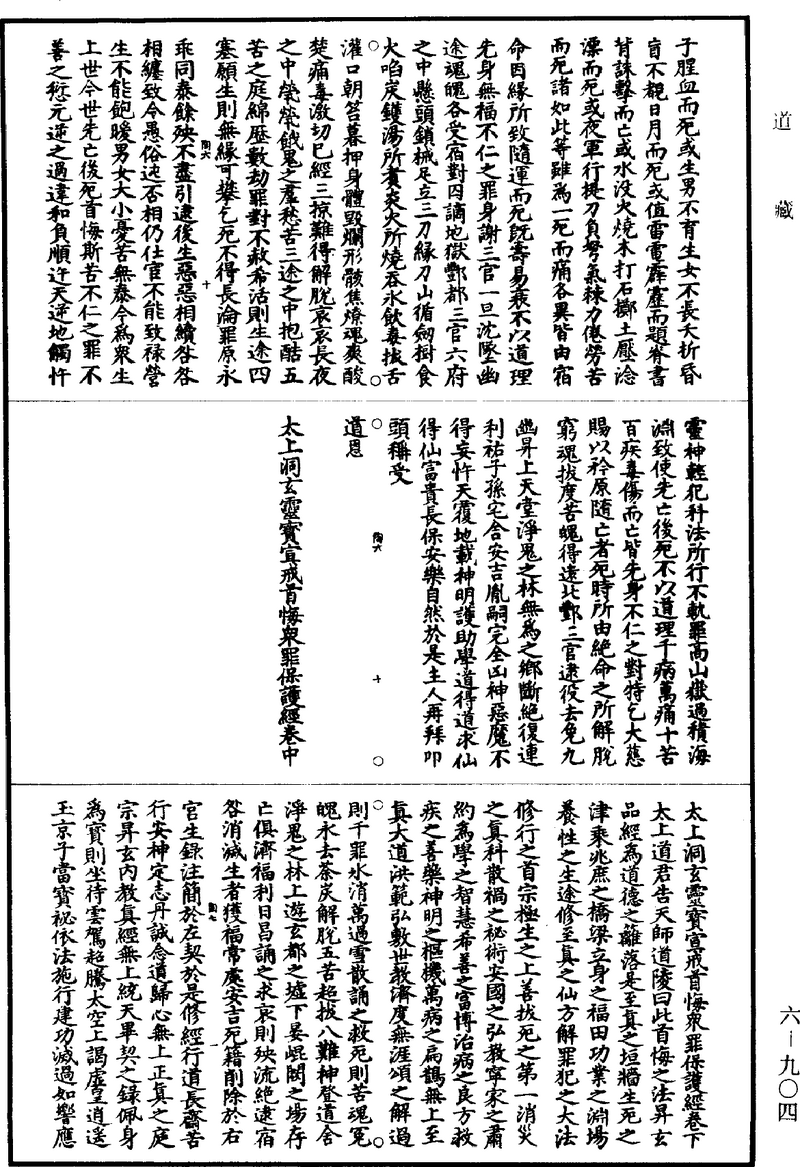 道藏
子腥血而死或生男不育生女不長夭折昏
盲不覩日月而死或值雷電霹靂而題脊書
背誅擊而亡或水没火燒木打石擲土壓淦
漂而死或夜軍行挺刀負弩氣竦力儽勞苦
而死諸如此等雖為一死而痛各異皆由宿
命因緣所致隨運而死既壽易哀不以道理
先身無福不仁之罪身謝三官一旦沈墜幽
途魂魄各受宿對囚謫地獄酆都三官六府
之中懸頭鎖械足立三刀緣刀山循劒樹食
火啗炭鑊湯所煑炎火所燒吞氷飲毒拔舌
灌口朝笞暮押身體毀爛形骸焦燎魂爽酸
楚痛毒激切已經三掠難得解脫哀哀長夜
之中煢煢餓鬼之羣愁苦三途之中抱酷五
苦之庭綿歷數劫罪對不赦希活則生途四
塞願生則無緣可攀乞死不得長淪罪原永
乖同泰餘殃不盡引逮後生惡惡相續咎咎
陶六 十
相纏致令愚俗迍否相仍仕宦不能致禄營
生不能飽暖男女大小憂苦無泰今為衆生
上世今世先亡後死首悔斯苦不仁之罪不
善之愆元逆之過違和負順迕天逆地觸忤
靈神輕犯科法所行不軌罪高山嶽過積海
淵致使先亡後死不以道理千病萬痛十苦
百疾毒傷而亡皆先身不仁之對特乞大慈
賜以矜原隨亡者死時所由絕命之所解脫
窮魂拔度苦魄得遠北酆三官逮役去免九
幽昇上天堂淨鬼之林無為之鄉斷絕復連
利祐子孫宅舍安吉胤嗣完全凶神惡魔不
得妄忤天覆地載神明護助學道得道求仙
得仙富貴長保安樂自然於是主人再拜叩
頭稱受
陶六 十
道恩
太上洞玄靈寶宣戒首悔衆罪保護經卷中
太上洞玄靈寶宣戒首悔衆罪保護經卷下
太上道君告天師道陵曰此首悔之法昇玄
品經為道德之籬落是至真之垣牆生死之
津乘兆庶之橋梁立身之福田功業之淵場
養性之生途修至真之仙方解罪犯之大法
修行之首宗極生之上善拔死之第一消災
之真科散禍之祕術安國之弘教寧家之肅
約為學之智慧希善之富博治病之良方救
疾之善藥神明之樞機萬病之扁鶴無上至
真大道洪範弘敷世教濟度無涯頌之解過
則千罪氷消萬過雪散誦之救死則苦魂冤
魄永去荼炭解脫五苦超拔八難神登道舍
淨鬼之林上遊玄都之墟下晏崐閬之場存
亡俱濟福利日昌誦之求哀則殃流絕逮宿
咎消滅生者獲福常處安吉死籍削除於右
陶七 一
官生録注簡於左契於是修經行道長齋苦
行安神定志丹誠念道歸心無上正真之庭
宗昇玄內教真經無上統天畢契之録佩身
為寶則坐待雲駕超騰太空上謁虛皇逍遥
玉京子當寶祕依法施行建功滅過如響應
六－九〇四